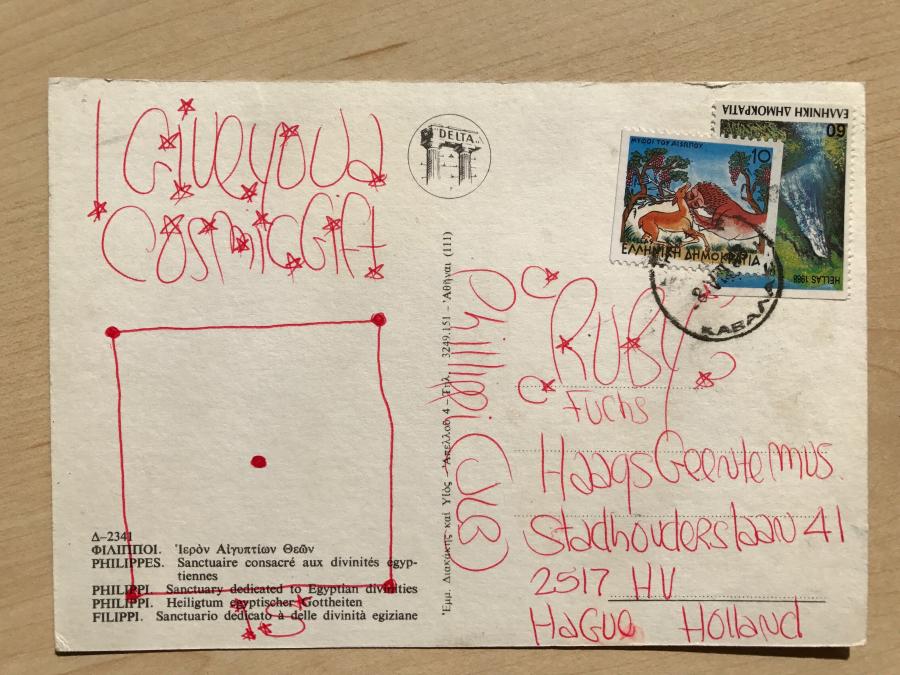 I Give you a
Cosmic Gift
DELTA
ΕΛΛΗΝΙΚΗ ΔΗΜΟΚΡΑΤΙΑ
60
HELLAS 1988
ΜΥΘΟΙ ΤΟΥ ΑΙΣΩΠΟΥ
10
ΕΛΛΗΝΙΚΗ ΔΗΜΟΚΡΑΤΙΑ
ΚΑΒΑΛΑ
Phillipi
Ἐμμ. Διακάκης καὶ Υἱός - Ἀπελλοῦ 4 - Τηλ. 3249.151 - Ἀθῆναι (111)
RUBY
Fuchs
Haags Geente mus.
Stadhouderslaan 41
2517 HV
HAGUe Holland
Δ-2341
ΦΙΛΙΠΠΟΙ. Ἱερὸν Αἰγυπτίων Θεῶν
PHILIPPES. Sanctuaire consacré aux divinités égyp-
tiennes
PHILIPPI. Sanctuary dedicated to Egyptian divinities
PHILIPPI. Heiligtum egyptischer Gottheiten
FILIPPI. Sanctuario dedicato à delle divinità egiziane